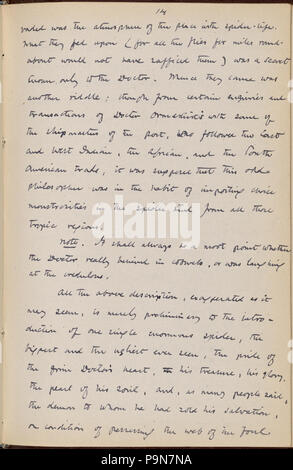 14
vaded was the atmosphere of the place with spider-life.
What they fed upon (for all the flies for miles round-
about would not have sufficed them) was a secret
known only to the Doctor. Whence they came was
another riddle; though from certain inquiries and
transactions of Doctor Ormskirk's with some of
the shipmasters of the port, who followed the East
and West Indian, the African, and the South
American trade, it was supposed that this odd
philosopher was in the habit of importing choice
monstrosities in the spider kind from all those
tropic regions.
Note. It shall always be a moot point whether
the Doctor really believed in cobwebs, or was laughing
at the credulous.
All the above description, exaggerated as it
may seem, is merely preliminary to the intro-
duction of one single enormous spider, the
biggest and the ugliest ever seen, the pride of
the grim Doctor's heart, his treasure, his glory,
the pearl of his soul, and, as many people said,
the demon to whom he had sold his salvation,
on condition of possessing the web of the foul
alamy
Image ID: P9N7NA
www.alamy.com